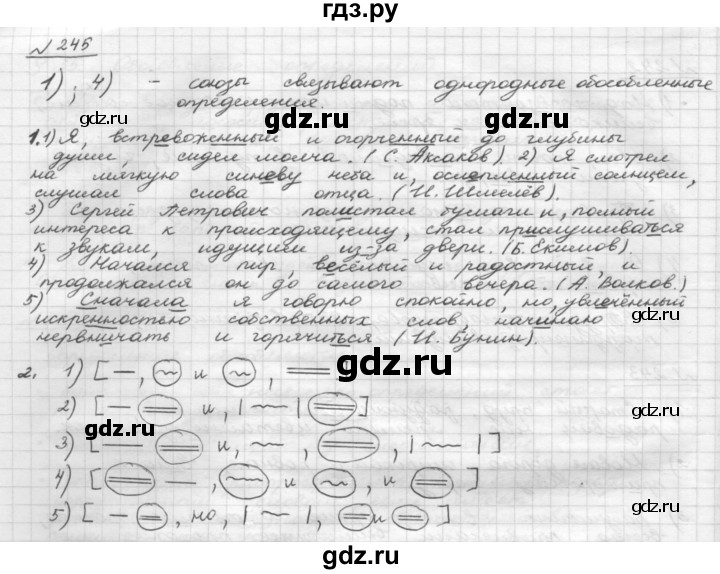 гдз.ру
№ 245
1); 4) – союзы связывают однородные обособленные
определения.
1. 1) Я, встревоженный и огорченный до глубины
души, сидел молча. (С. Аксаков). 2) Я смотрел
на мягкую синеву неба и, ослепленный солнцем,
слушал слова отца. (И. Шмелёв).
3) Сергей Петрович полистал бумаги и, полный
интереса к происходящему, стал прислушиваться
к звукам, идущим из-за двери. (Б. Екимов).
4) Начался пир, весёлый и радостный, и
продолжался он до самого вечера. (А. Волков.)
5) Сначала я говорю спокойно, но, увлечённый
искренностью собственных слов, начинаю
нервничать и горячиться (И. Бунин).
2. 1) [ – , и , ]
2) [ – и, | | ]
3) [ – и, – , , | | ]
4) [ – , и , и ]
5) [ – , но, | | , и ]
gdz.ru
gdz.ru
gdz.ru
gdz.ru
gdz.ru
gdz.ru
gdz.ru
gdz.ru
gdz.ru